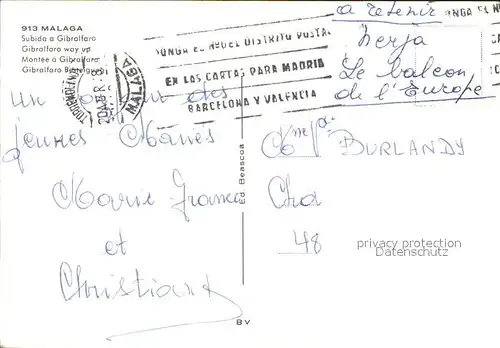 913 MALAGA
Subida a Gibralfaro
Gibralfaro way up
Montée a Gibralfaro
Gibralfaro
TORREMOLINOS
MALAGA
PONGA EL Nº DEL DISTRITO POSTAL
EN LAS CARTAS PARA MADRID
BARCELONA Y VALENCIA
PONGA EL Nº
a retenir
Nerja
Le balcon
de l'Europe
un des
jeunes Mariés
Marie France
et
Christian
Ed. Beascoa
BURLANDY
48
privacy protection
sammler.com
BV